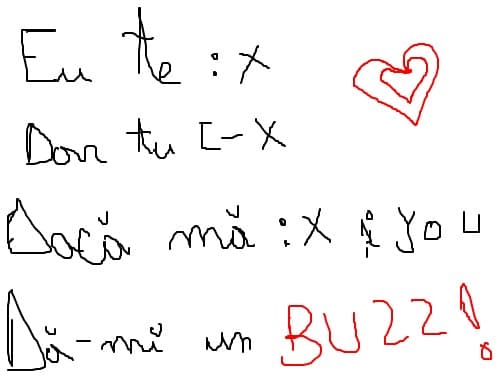 Eu te :x
Dar tu [-X
Dacă mă :X și you
Dă-mi un BUZZ!